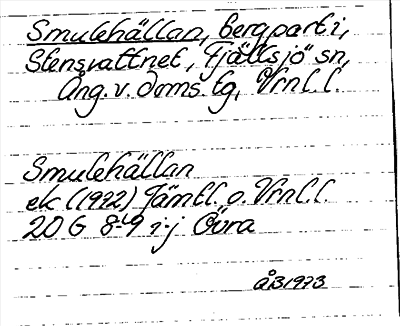 Smulehällan, bergparti,
Stensvattnet, Fjällsjö sn,
Ång. v. doms. tg, Vrnl. l.
Smulehällan
ek (1972) Jämtl. o. Vrnl. l.
20 G 8-9 i-j Övra
ÅB 1973